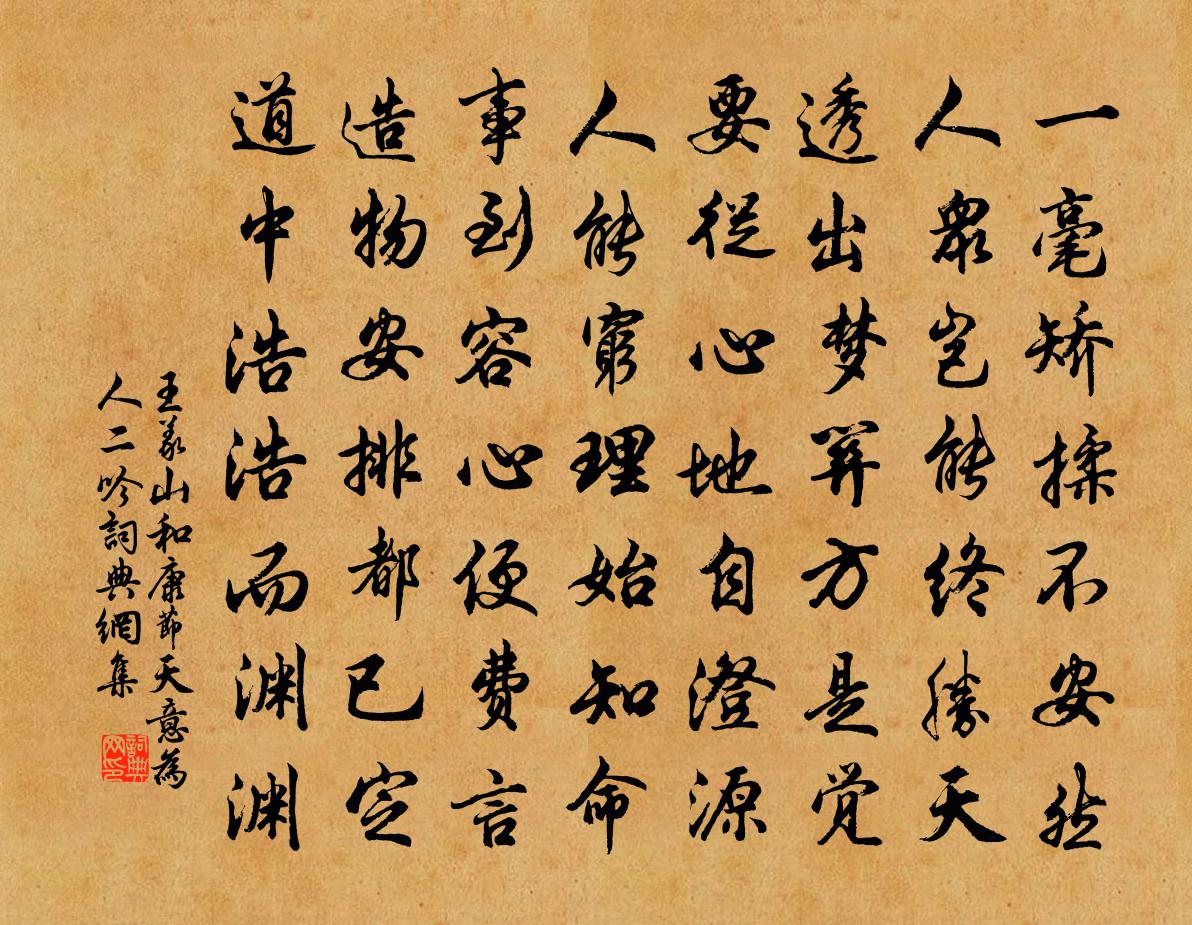 一毫矫揉不安然
人眾岂能终勝天
透出梦筭方是觉
要從心地自澄源
人能窮理始知命
事到容心便费言
造物安排都已定
道中浩浩而渊渊
王義山和康節天意為
人二吟詞典網集
詞典
网印